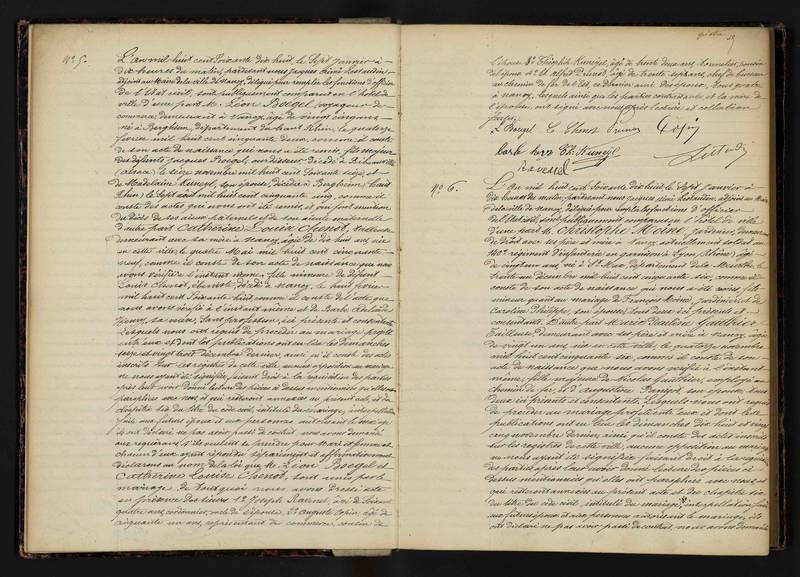 N° 5.
L'an mil huit cent soixante dix huit le sept janvier à
dix heures du matin, pardevant nous Jacques
adjoint au Maire de la ville de Nancy, délégué pour remplir les fonctions d'officier
de l'État civil, sont publiquement comparus en l'hôtel de
ville d'une part M. Léon Boegel, voyageur de
commerce demeurant à Nancy âgé de vingt cinq ans
né à Bergheim, département du haut Rhin, le quatorze
février mil huit cent cinquante deux, comme il conste
de son acte de naissance qui nous a été remis, fils majeur
des défunts Jacques Boegel, décédé à Ribeauvillé
(Alsace) le seize novembre mil huit cent soixante seize, et
de Madelaine son épouse, décédée à Bergheim (haut
Rhin) le sept août mil huit cent cinquante cinq, comme il
conste des actes qui nous ont été remis, et qui font mention
du décès de ses aïeux paternels et de son aïeule maternelle
d'autre part Catherine Louise Chenot,
demeurant avec sa mère à Nancy, âgée de dix huit ans, née
en cette ville, le quatre Mai mil huit cent cinquante
neuf, comme il conste de son acte de naissance que nous
avons vérifié à l'instant même, fille mineure de défunt
Louis Chenot, ébéniste, décédé à Nancy, le huit février
mil huit cent soixante huit, comme il conste de l'acte que
nous avons vérifié à l'instant même et de Barbe
sa veuve, sans profession, ici présente et consentante
lesquels nous ont requis de procéder au mariage projeté
entre eux et dont les publications ont eu lieu les dimanches
et vingt trois décembre dernier, ainsi qu'il conste des actes
inscrits sur les registres de cette ville, aucune opposition au mariage
ne nous ayant été signifiée, faisant droit à la réquisition des parties
après leur avoir donné lecture des pièces ci dessus mentionnées qu'elles ont
paraphées avec nous, et qui resteront annexées au présent acte, et du
chapitre six du titre du code civil, intitulé du mariage, interpellation
faite aux futurs époux et aux personnes autorisant le mariage
ils ont déclaré ne pas avoir passé de contrat, nous avons demandé
aux requérants s'ils veulent se prendre pour mari et femme et
chacun d'eux ayant répondu séparément et affirmativement
déclarons au nom de la loi que M. Léon Boegel et
Catherine Louise Chenot sont unis par le
mariage, de tout quoi nous avons dressé acte
en présence des sieurs 1° Joseph Ravenel, âgé de
quatre ans, cordonnier, oncle de l'épouse, 2° Auguste Copin, âgé de
cinquante un ans, représentant de commerce, cousin de
quatre
l'épouse 3° Théophile âgé de trente deux ans, tonnelier, cousin
de l'époux 4° et Alfred Prunot, âgé de trente sept ans, chef de bureau
au chemin de fer de l'Est, ami des époux, tous quatre
à Nancy, lesquels ainsi que les parties contractantes et la mère de
l'épouse, ont signé avec nous après lecture et collation
faites.
L. Boegel L. Chenot Prunot Copin
Ravenel
N° 6.
L'an mil huit cent soixante dix huit le sept janvier à
dix heures du matin, pardevant nous Jacques adjoint au Maire
de la ville de Nancy délégué pour remplir les fonctions d'officier
de l'État civil, sont publiquement comparus en l'hôtel de ville
d'une part M. Christophe Moine, jardinier, demeurant
de droit avec ses père et mère à Nancy actuellement soldat au
140e régiment d'infanterie en garnison à Lyon (Rhône), âgé
de vingt un ans, né à St Max, département de la Meurthe, le
trente un décembre mil huit cent cinquante six, comme il
conste de son acte de naissance qui nous a été remis, fils
mineur quant au mariage de François Moine, jardinier, et de
Caroline Philippe, son épouse, tous deux ici présents et
consentants, d'autre part Marie Pauline Gauthier
tailleuse, demeurant avec ses père et mère à Nancy, âgée
de vingt un ans, née en cette ville, le quatorze
mil huit cent cinquante six, comme il conste de son
acte de naissance que nous avons vérifié à l'instant
même, fille majeure de Nicolas Gauthier, employé au
chemin de fer, et d'Augustine son épouse, tous
deux ici présents et consentants, lesquels nous ont requis
de procéder au mariage projeté entre eux et dont les
publications ont eu lieu les dimanches dix huit et vingt
cinq novembre dernier, ainsi qu'il conste des actes inscrits
sur les registres de cette ville, aucune opposition au mariage
ne nous ayant été signifiée faisant droit à la réquisition
des parties après leur avoir donné lecture des pièces ci
dessus mentionnées qu'elles ont paraphées avec nous, et
qui resteront annexées au présent acte et du chapitre six
du titre du code civil, intitulé du mariage, interpellation faite
aux futurs époux et aux personnes autorisant le mariage, ils
ont déclaré ne pas avoir passé de contrat, nous avons demandé